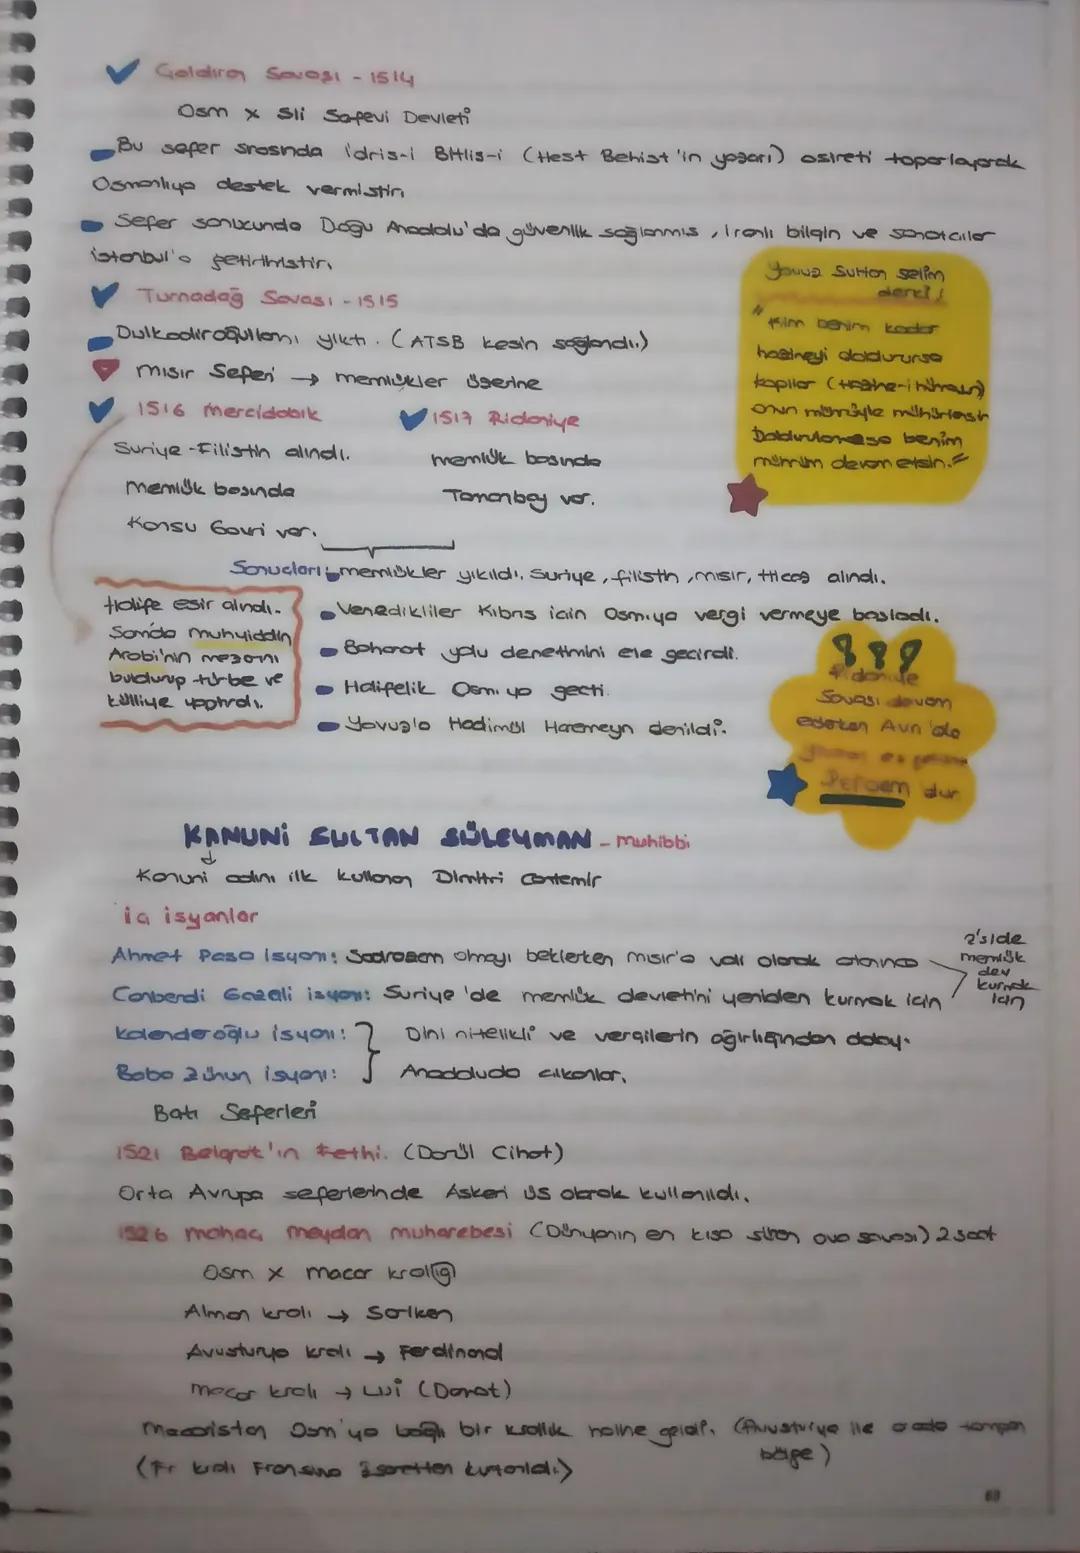 Çaldıran Savaşı - 1514
Osm x Şii Safevi Devleti
Bu sefer sırasında İdris-i Bitlis-i (Heşt Behişt'in yazarı) aşireti toparlayarak
Osmanlıya destek vermiştir.
Sefer sonucunda Doğu Anadolu'da güvenlik sağlanmış, İranlı bilgin ve sanatcılar
istanbul'a getirtmiştir.
Turnadağ Savaşı - 1515
Dulkadiroğulları yıktı. (ATSB kesin sağlandı.)
Mısır Seferi → memlükler üzerine
1516 Mercidabık
Suriye - Filistin alındı.
memlük başında
Konsu Gavri var.
1517 Ridaniye
memlük başında
Tomanbay var.
Yavuz Sultan Selim
derki;
"Kim benim kadar
hazineyi doldurursa
kapılar (Hazine-i hümayun)
onun mührüyle mühürlensin
Doldurulamazsa benim
mührüm devam etsin."
Sonuçları: memlükler yıkıldı. Suriye, filistin, mısır, Hicaz alındı.
Venedikliler Kıbrıs için Osm.ya vergi vermeye başladı.
Baharat yolu denetimini ele geçirdi.
Halifelik Osm. ya geçti.
Yavuz'a Hadimül Haremeyn denildi.
Halife esir alındı.
Şam'da muhyiddin
Arabi'nin mezarını
buldurup türbe ve
külliye yaptırdı.
Ridaniye
Savaşı devam
ederken Avn'da
dur
KANUNİ SULTAN SÜLEYMAN - muhibbi
Kanuni adını ilk kullanan Dimitri Cantemir
iç isyanlar
Ahmet Paşa isyanı: Sadrazam olmayı beklerken mısır'a vali olarak atanınca
Canberdi Gazali isyanı: Suriye'de memlük devletini yeniden kurmak için
2'side
memlük
dev
kurmak
için
Kalenderoğlu isyanı:
Baba Zünun isyanı:
Dini nitelikli ve vergilerin ağırlığından dolayı
Anadoluda çıkanlar.
Batı Seferleri
1521 Belgrat'ın Fethi. (Darül Cihat)
Orta Avrupa seferlerinde Askeri üs olarak kullanıldı.
1526 mohaç meydan muharebesi (Dünyanın en kısa süren ova savaşı) 2 saat
Osm x macar krallığı
Alman kralı → Şarlken
Avusturya kralı → Ferdinand
macar kralı → Lui (Dorat)
Macaristan Osm'ya bağlı bir krallık haline geldi. (Avusturya ile arada tampon
bölge)
(Fr kralı Fransuva Esaretten kurtarıldı.)
63